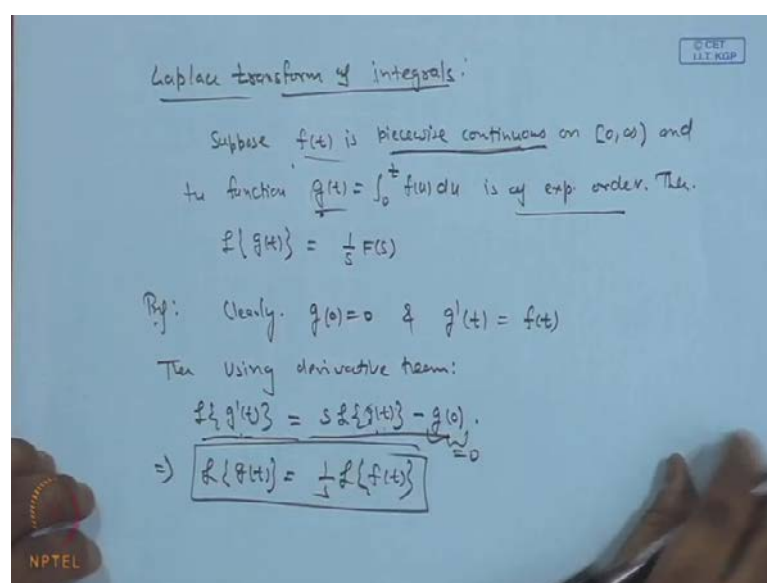 © CET
I.I.T. KGP
Laplace transform of integrals:
Suppose f(t) is piecewise continuous on [0, ∞) and
the function g(t) = ∫₀ᵗ f(u) du is of exp. order. Then.
ℒ{g(t)} = 1/s F(s)
Prf: Clearly. g(0)=0 & g'(t) = f(t)
Then using derivative theorem:
ℒ{g'(t)} = s ℒ{g(t)} - g(0).
=0
⇒ ℒ{g(t)} = 1/s ℒ{f(t)}
NPTEL